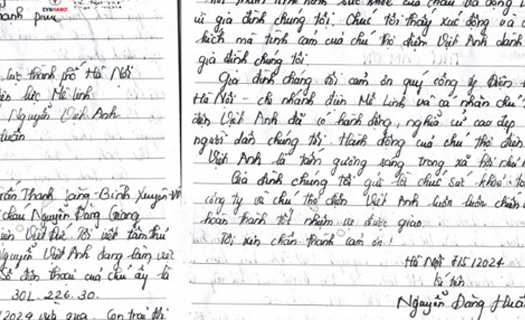 EVNHANOI
lực thành phố Hà Nội
điện lực Mê linh
Nguyễn Việt Anh
Huấn
Thanh Lãng - Bình Xuyên - V
cháu Nguyễn Đăng Giang
Nguyễn Việt Anh đang làm việc
số điện thoại của chú ấy là
30L. 226.30.
/2024 vừa qua. Con trai tôi
gia đình chúng tôi. Chúc tôi thấy xúc động và
kích mà tình cảm của chú thợ điện Việt Anh dành
gia đình chúng tôi.
Gia đình chúng tôi cảm ơn quý công ty Điện
Hà Nội - chi nhánh điện Mê Linh và cá nhân chú
điện Việt Anh đã có hành động, nghĩa cử cao đẹp
người dân chúng tôi, Hành động của chú thợ điện
Việt Anh là tấm gương sáng trong xã hội
Gia đình chúng tôi gửi lời chúc sức khỏe tới
công ty và chú thợ điện Việt Anh luôn luôn
hoàn thành tốt nhiệm vụ được giao.
Tôi xin chân thành cảm ơn!
Hà Nội 7/5/2024
kí tên
Nguyễn Đăng Huấn